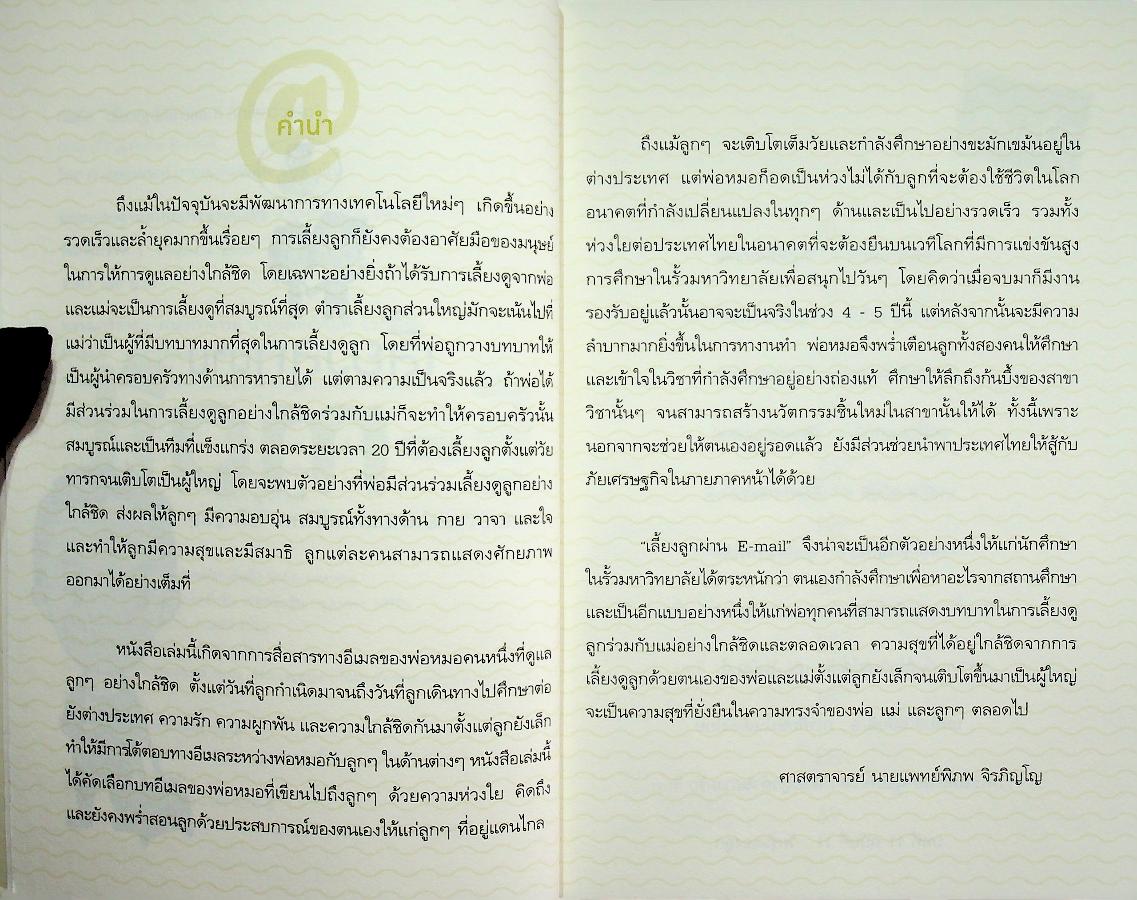 คำนำ
ถึงแม้ในปัจจุบันจะมีพัฒนาการทางเทคโนโลยีใหม่ๆ เกิดขึ้นอย่าง
รวดเร็วและล้ำยุคมากขึ้นเรื่อยๆ การเลี้ยงลูกก็ยังคงต้องอาศัยมือของมนุษย์
ในการให้การดูแลอย่างใกล้ชิด โดยเฉพาะอย่างยิ่งถ้าได้รับการเลี้ยงดูจากพ่อ
และแม่จะเป็นการเลี้ยงดูที่สมบูรณ์ที่สุด ตำราเลี้ยงลูกส่วนใหญ่มักจะเน้นไปที่
แม่ว่าเป็นผู้ที่มีบทบาทมากที่สุดในการเลี้ยงดูลูก โดยที่พ่อถูกวางบทบาทให้
เป็นผู้นำครอบครัวทางด้านการหารายได้ แต่ตามความเป็นจริงแล้ว ถ้าพ่อได้
มีส่วนร่วมในการเลี้ยงดูลูกอย่างใกล้ชิดร่วมกับแม่ก็จะทำให้ครอบครัวนั้น
สมบูรณ์และเป็นทีมที่แข็งแกร่ง ตลอดระยะเวลา 20 ปีที่ต้องเลี้ยงลูกตั้งแต่วัย
ทารกจนเติบโตเป็นผู้ใหญ่ โดยจะพบตัวอย่างที่พ่อมีส่วนร่วมเลี้ยงดูลูกอย่าง
ใกล้ชิด ส่งผลให้ลูกๆ มีความอบอุ่น สมบูรณ์ทั้งทางด้าน กาย วาจา และใจ
และทำให้ลูกมีความสุขและมีสมาธิ ลูกแต่ละคนสามารถแสดงศักยภาพ
ออกมาได้อย่างเต็มที่
หนังสือเล่มนี้เกิดจากการสื่อสารทางอีเมลของพ่อหมอคนหนึ่งที่ดูแล
ลูกๆ อย่างใกล้ชิด ตั้งแต่วันที่ลูกกำเนิดมาจนถึงวันที่ลูกเดินทางไปศึกษาต่อ
ยังต่างประเทศ ความรัก ความผูกพัน และความใกล้ชิดกันมาตั้งแต่ลูกยังเล็ก
ทำให้มีการโต้ตอบทางอีเมลระหว่างพ่อหมอกับลูกๆ ในด้านต่างๆ หนังสือเล่มนี้
ได้คัดเลือกบทอีเมลของพ่อหมอที่เขียนไปถึงลูกๆ ด้วยความห่วงใย คิดถึง
และยังคงพร่ำสอนลูกด้วยประสบการณ์ของตนเองให้แก่ลูกๆ ที่อยู่แดนไกล
ถึงแม้ลูกๆ จะเติบโตเต็มวัยและกำลังศึกษาอย่างขะมักเขม้นอยู่ใน
ต่างประเทศ แต่พ่อหมอก็อดเป็นห่วงไม่ได้กับลูกที่จะต้องใช้ชีวิตในโลก
อนาคตที่กำลังเปลี่ยนแปลงในทุกๆ ด้านและเป็นไปอย่างรวดเร็ว รวมทั้ง
ห่วงใยต่อประเทศไทยในอนาคตที่จะต้องยืนบนเวทีโลกที่มีการแข่งขันสูง
การศึกษาในรั้วมหาวิทยาลัยเพื่อสนุกไปวันๆ โดยคิดว่าเมื่อจบมาก็มีงาน
รองรับอยู่แล้วนั้นอาจจะเป็นจริงในช่วง 4 - 5 ปีนี้ แต่หลังจากนั้นจะมีความ
ลำบากมากยิ่งขึ้นในการหางานทำ พ่อหมอจึงพร่ำเตือนลูกทั้งสองคนให้ศึกษา
และเข้าใจในวิชาที่กำลังศึกษาอยู่อย่างถ่องแท้ ศึกษาให้ลึกถึงก้นบึ้งของสาขา
วิชานั้นๆ จนสามารถสร้างนวัตกรรมชิ้นใหม่ในสาขานั้นให้ได้ ทั้งนี้เพราะ
นอกจากจะช่วยให้ตนเองอยู่รอดแล้ว ยังมีส่วนช่วยนำพาประเทศไทยให้สู้กับ
ภัยเศรษฐกิจในภายภาคหน้าได้ด้วย
“เลี้ยงลูกผ่าน E-mail” จึงน่าจะเป็นอีกตัวอย่างหนึ่งให้แก่นักศึกษา
ในรั้วมหาวิทยาลัยได้ตระหนักว่า ตนเองกำลังศึกษาเพื่อหาอะไรจากสถานศึกษา
และเป็นอีกแบบอย่างหนึ่งให้แก่พ่อทุกคนที่สามารถแสดงบทบาทในการเลี้ยงดู
ลูกร่วมกับแม่อย่างใกล้ชิดและตลอดเวลา ความสุขที่ได้อยู่ใกล้ชิดจากการ
เลี้ยงดูลูกด้วยตนเองของพ่อและแม่ตั้งแต่ลูกยังเล็กจนเติบโตขึ้นมาเป็นผู้ใหญ่
จะเป็นความสุขที่ยั่งยืนในความทรงจำของพ่อ แม่ และลูกๆ ตลอดไป
ศาสตราจารย์ นายแพทย์พิภพ จิรภิญโญ